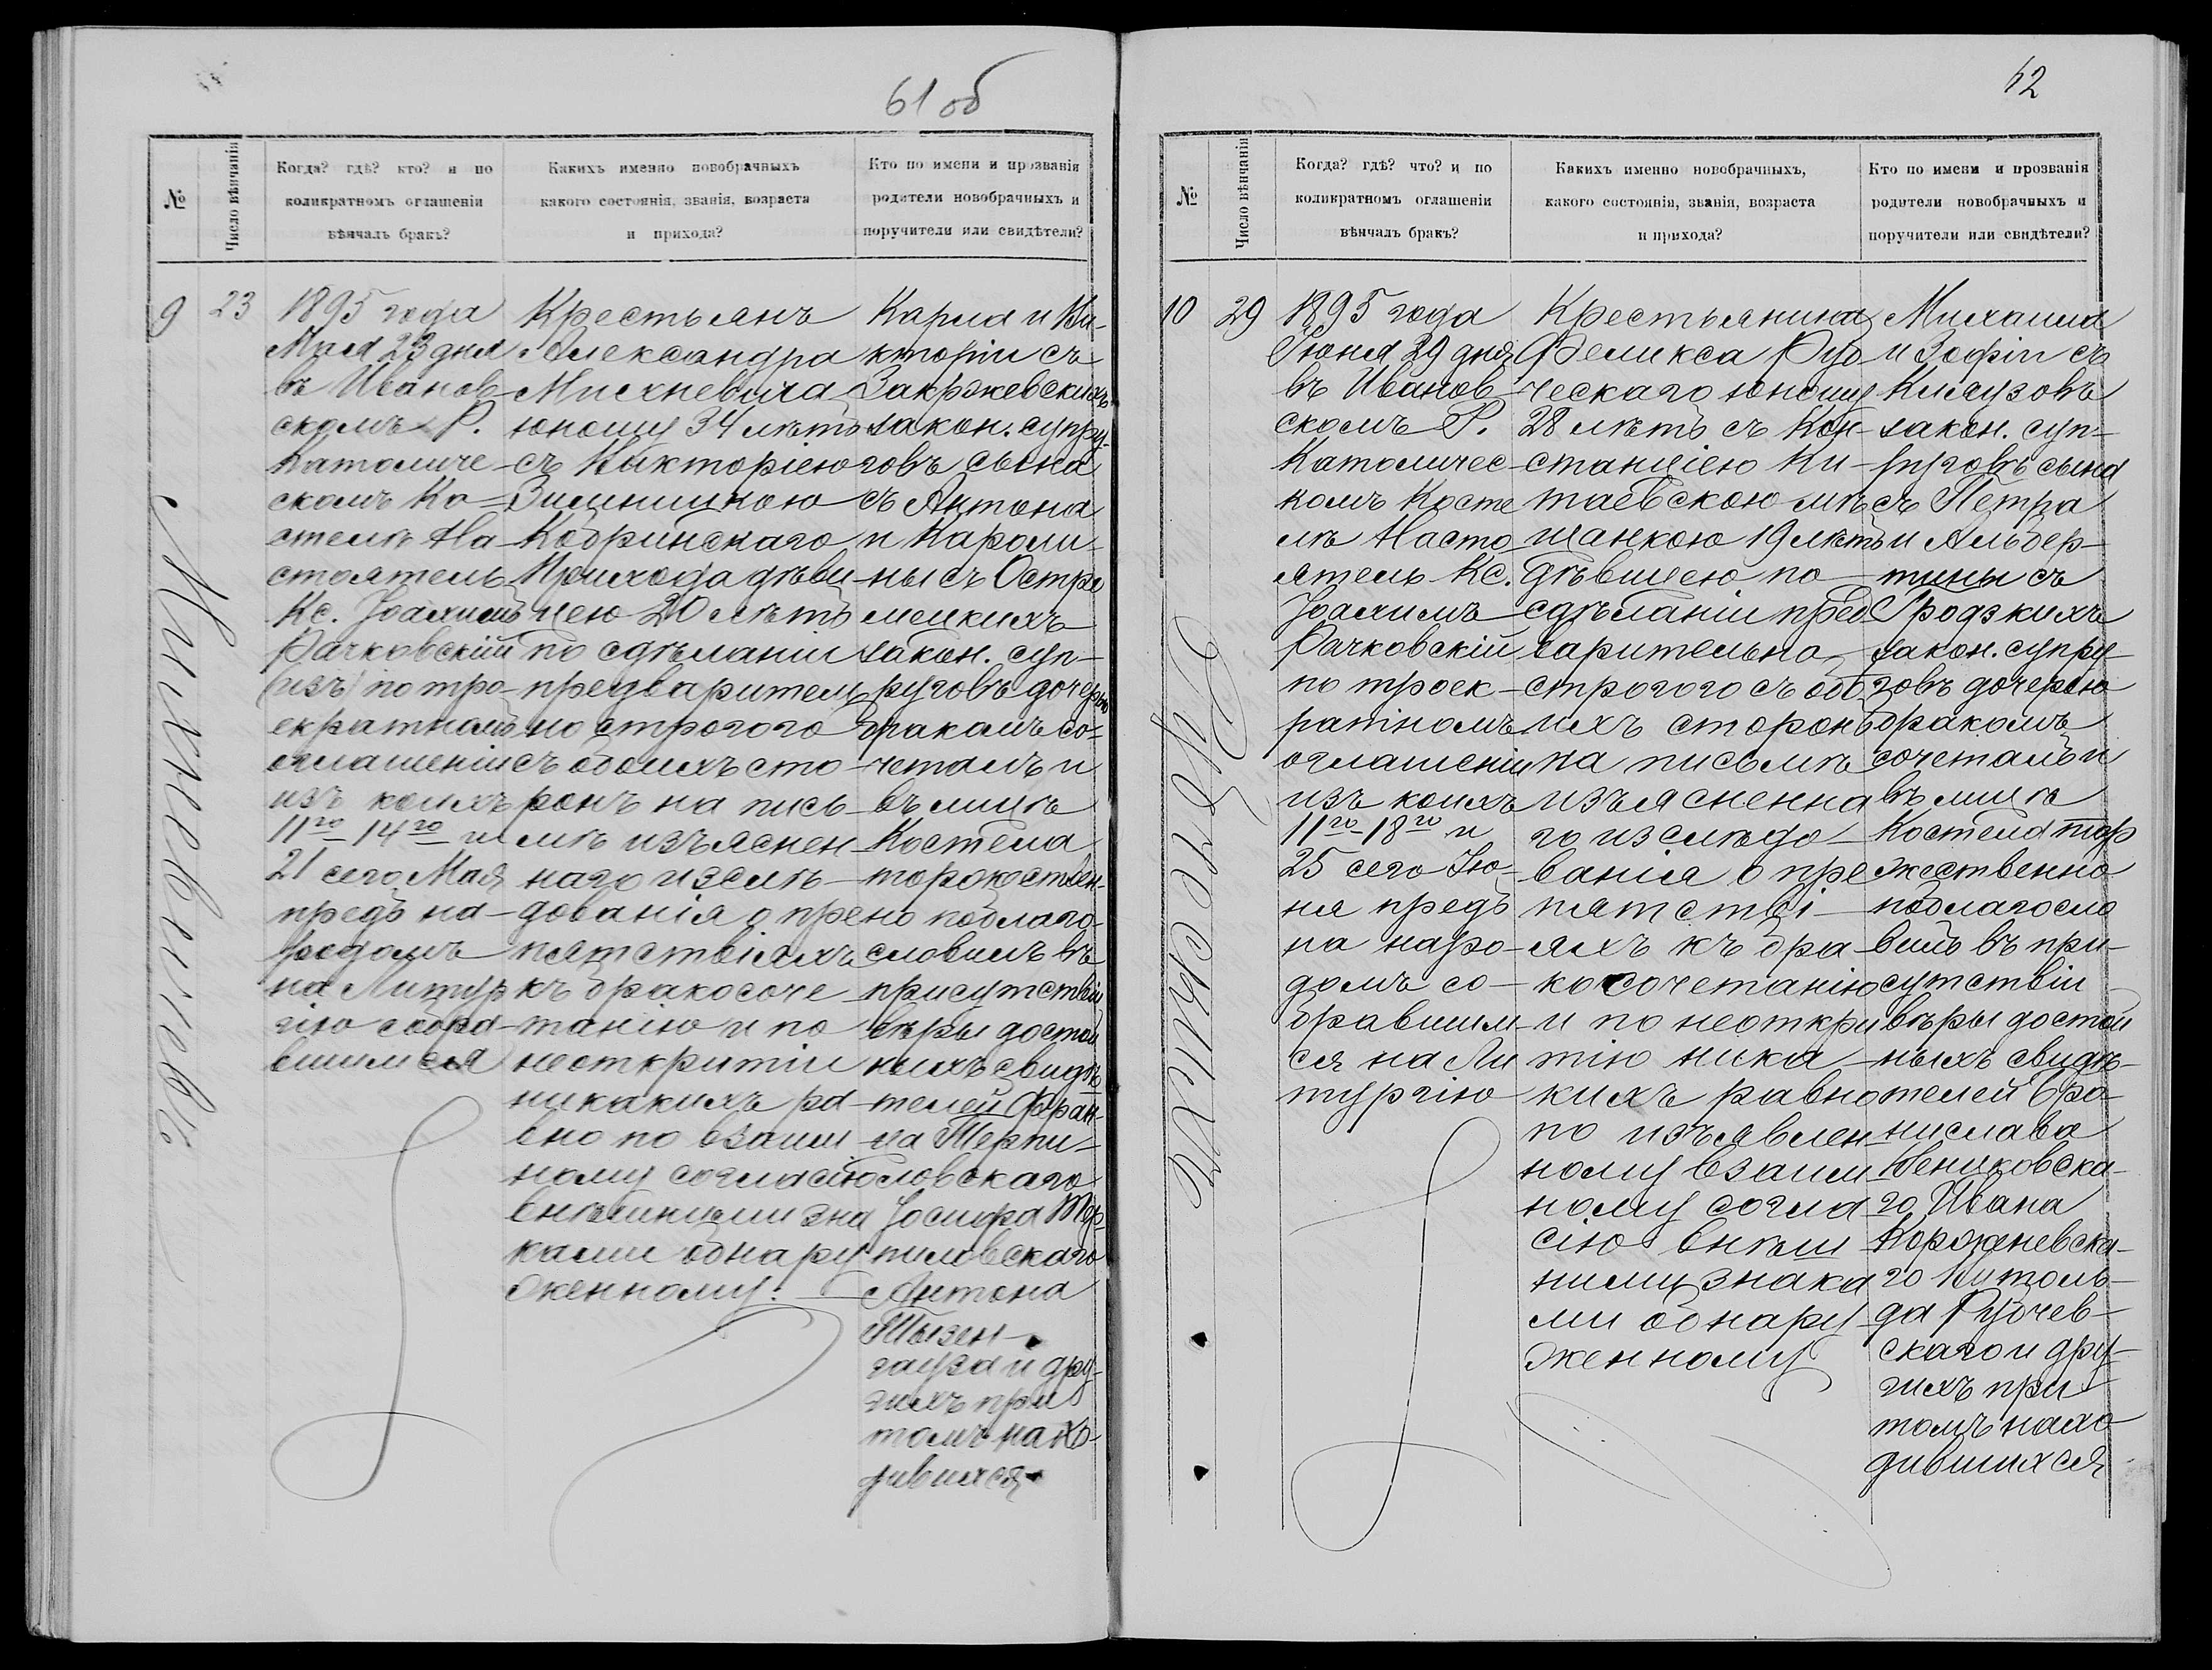 61 об
№
Число вѣнчанія
Когда? гдѣ? кто? и по
коликратномъ оглашеніи
вѣнчалъ бракъ?
Какихъ именно новобрачныхъ
какого состоянія, званія, возраста
и прихода?
Кто по имени и прозванія
родители новобрачныхъ и
поручители или свидѣтели?
9
23
Михневичъ
1895 года
Мая 23 дня
въ Иванов-
скомъ Р.
Католиче-
скомъ Ко-
стелѣ На-
стоятель
Кс. Іоахимъ
Рачковскій
(изъ) по тро-
екратномъ
оглашеніи
изъ коихъ
11го 14го и
21 сего Мая
предъ на-
родомъ
на Литур
гію собра-
вшимся
Крестьянъ
Александра
Михневича
юношу 34 лѣтъ
съ Викторіею
Зилиницкою
Кобринскаго
Прихода дѣви-
цею 20 лѣтъ
по сдѣланіи
предварител
но строгого
съ обоихъ сто-
ронъ на пись-
мѣ изъяснен-
наго изслѣ-
дованія о пре
пятствіяхъ
къ бракосоче
танію и по
неоткритіи
никакихъ ра
вно по взаим
ному согласію
внѣшними зна
ками обнару
женному.
Карла и Ви-
кторіи съ
Закржевскихъ
закон. супру-
говъ сына
съ Антона
и Кароли-
ны съ Остро
мецкихъ
закон. суп-
руговъ дочерью
бракомъ со-
четалъ и
въ лицѣ
Костела
торжествен-
но поблаго-
словилъ въ
присутствіи
вѣры достой
ныхъ свидѣ
телей Фран-
ца Терпи-
ловскаго
Іосифа Тер
пиловскаго
Антона
Тызен-
гауза и дру-
гихъ при
томъ нахо-
дившихся
62
№
Число вѣнчанія
Когда? гдѣ? что? и по
коликратномъ оглашеніи
вѣнчалъ бракъ?
Какихъ именно новобрачныхъ,
какого состоянія, званія, возраста
и прихода?
Кто по имени и прозванія
родители новобрачныхъ и
поручители или свидѣтели?
10
29
1895 года
Іюня 29 дня
въ Иванов-
скомъ Р.
Католичес-
комъ Косте
лѣ Насто
ятель Кс.
Іоахимъ
Рачковскій
по троек-
ратномъ
оглашеніи
изъ коихъ
11го 18го и
25 сего Ію-
ня предъ
на наро-
домъ со-
бравшим-
ся на Ли
тургію
Крестьянина
Феликса Руб
ческаго юношу
28 лѣтъ съ Кон-
станціею Ки-
таевскою мѣ
щанкою 19 лѣтъ
дѣвицею по
сдѣланіи пред
варительно
строгого съ обо
ихъ сторонъ
на письмѣ
изъясненна
го изслѣдо-
ванія о пре
пятстві-
яхъ къ бра-
косочетанію
и по неоткри
тію ника-
кихъ равно
по изъявлен
ному взаим
ному согла
сію внѣш
ними знака
ми обнару
женному
Михаила
и Зофіи съ
закон. суп-
руговъ сына
съ Петра
и Альбер-
тины съ
Гродзкихъ
закон. супру-
говъ дочерью
бракомъ
сочеталъ и
въ лицѣ
Костела тор
жественно
поблагосло
вилъ въ при-
сутствіи
вѣры достой
ныхъ свидѣ-
телей Бро-
нислава
го Ивана
го Витоль-
да Рубчев-
скаго и дру-
гихъ при
томъ нахо
дившихся